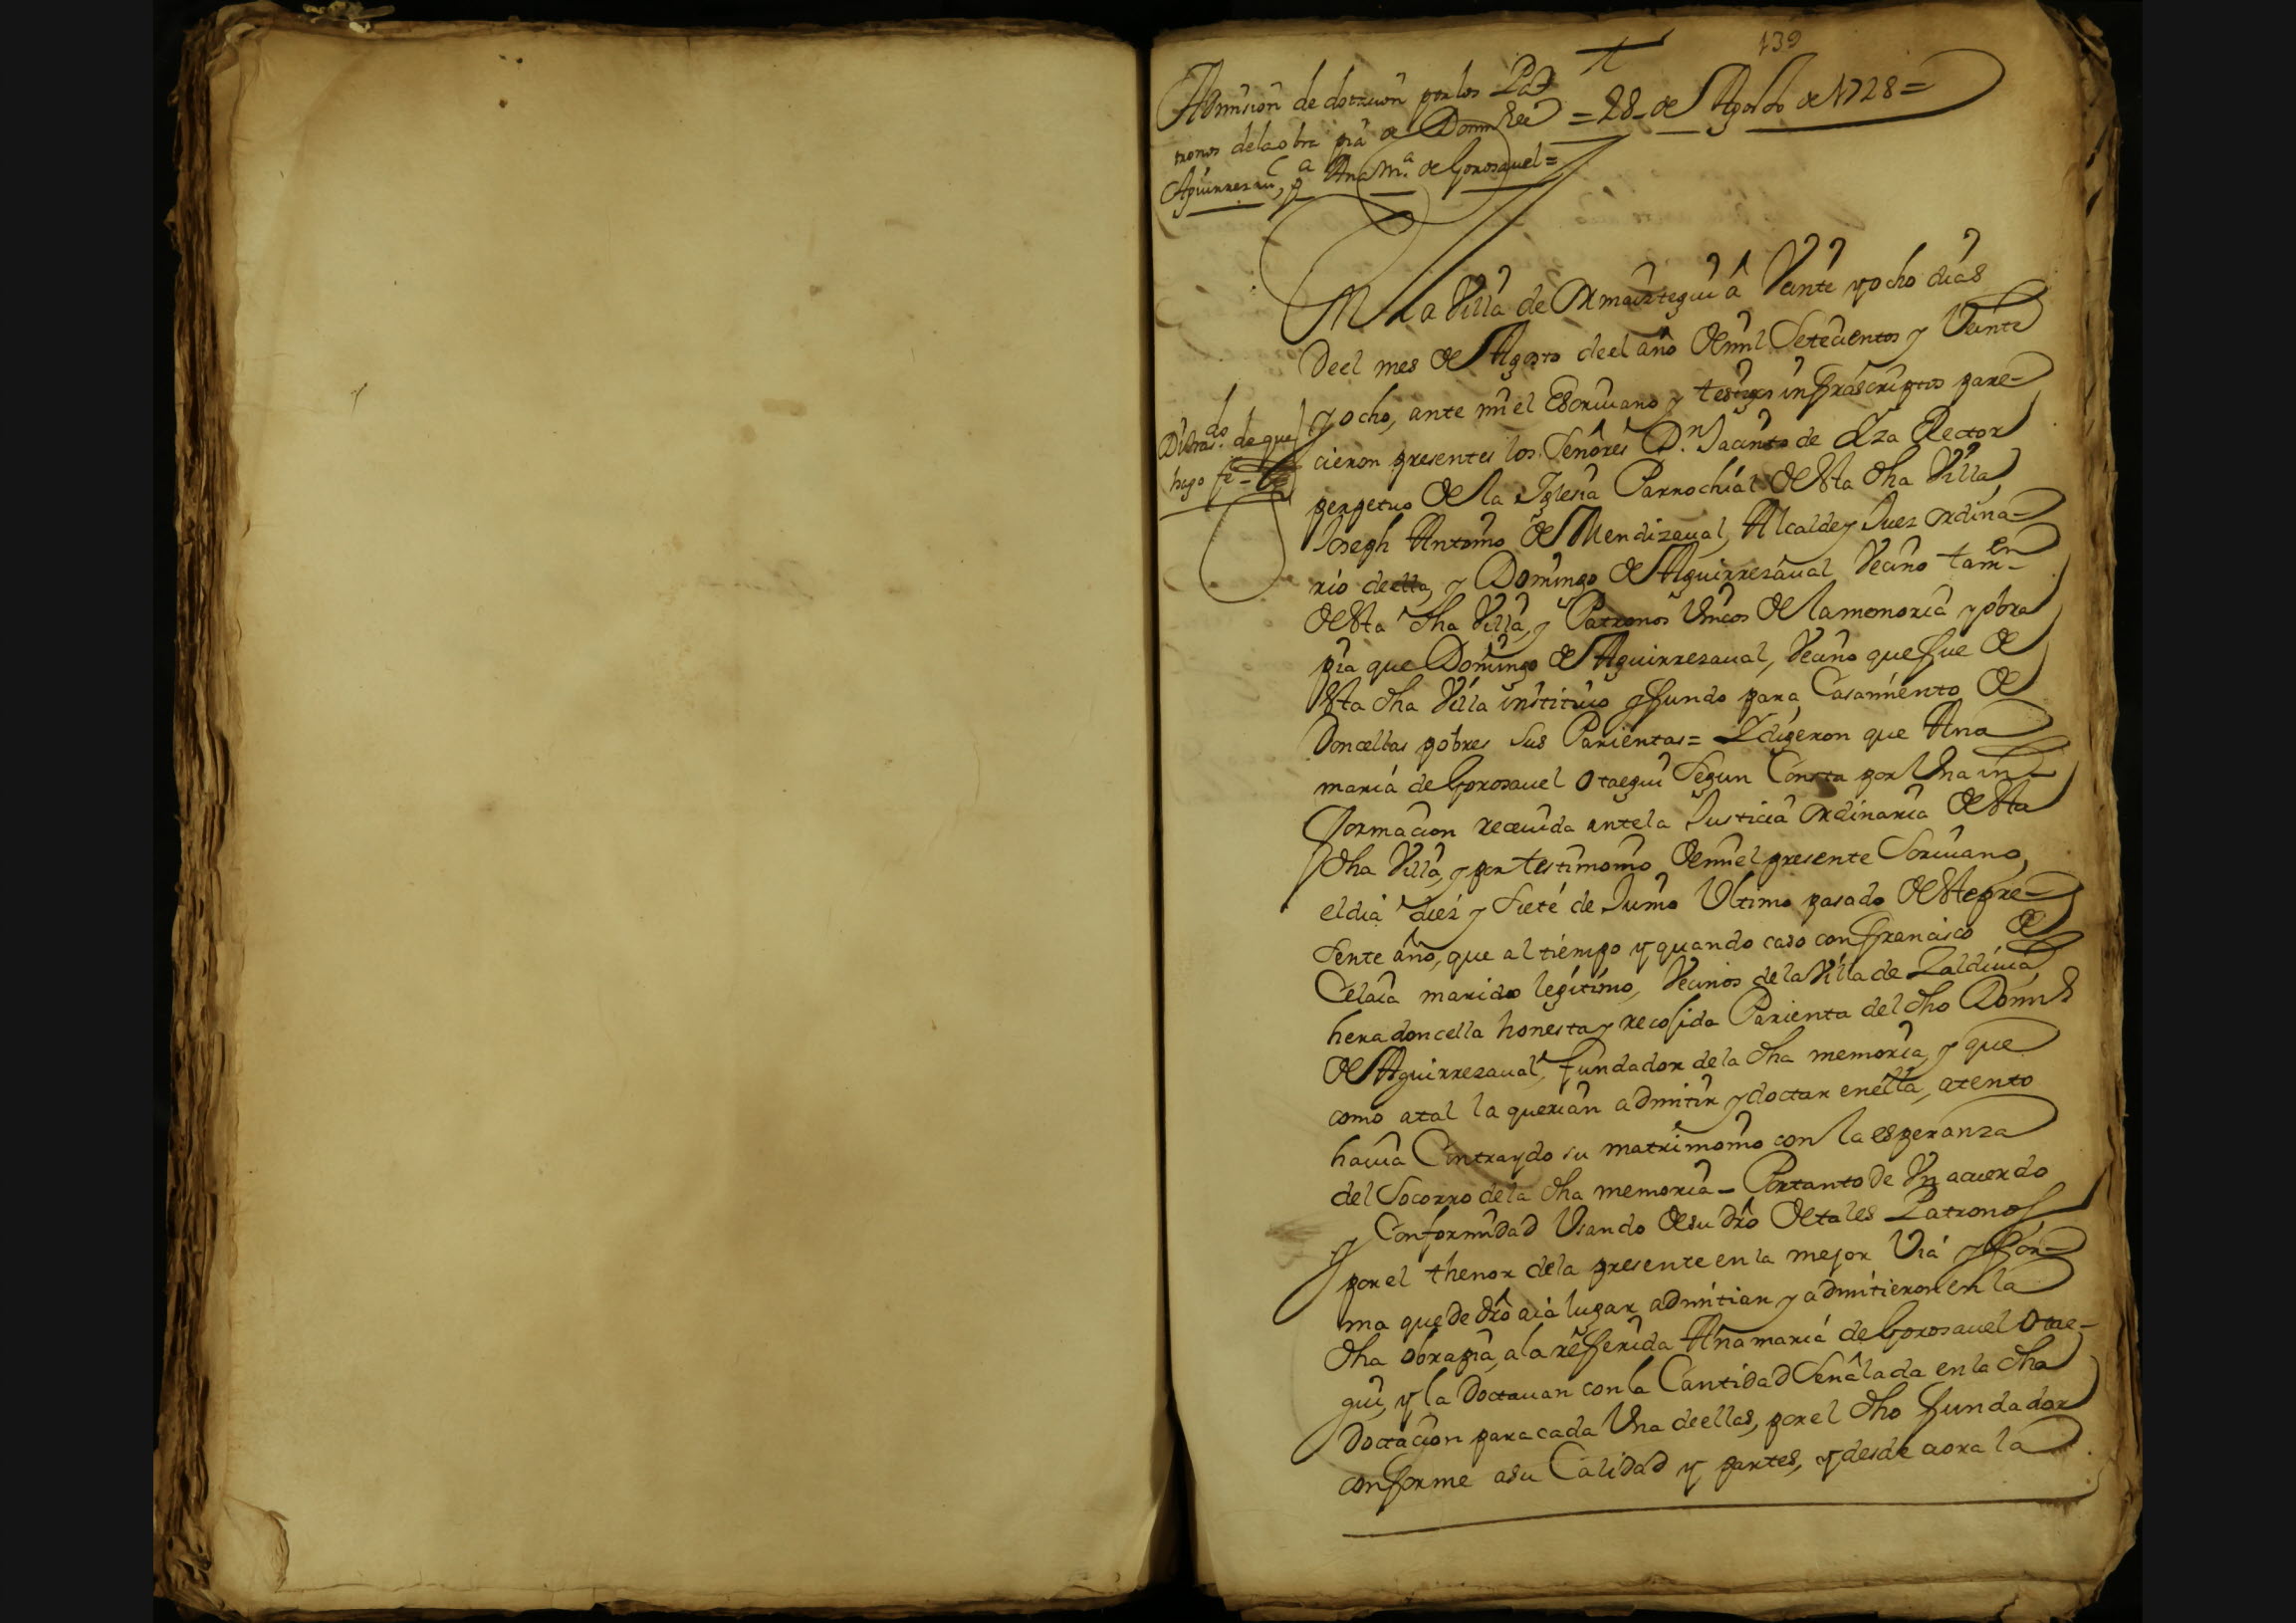 139
Admision de dotacion por los Pa-
tronos dela obra pia de Domin
Aguirrezau, pª Ana Mª de Gorosauel =
= 28 de Agosto de 1728 =
En la Villa de Ormaiztegui â Veinte y ocho dias
Deel mes de Agosto deel año de mil Setecientos y Veinte
y ocho, ante mi el Escriuano y testigos infrascriptos pare-
cieron presentes los Señores Dn. Jacinto de Elza Rector
perpetuo de la Iglesia Parrochial desta dha Villa
Joseph Antonio de Mendizaual, Alcalde y Juez ordina-
rio deella, y Domingo de Aguirrezaual Vecino tamen-
desta dha Villa, y Patronos Vnicos de la memoria y obra
pia que Domingo de Aguirrezaual, Vecino que fue de
sta dha Villa instituio y fundo para Casamiento de
Doncellas pobres sus Parientas = Y digeron que Ana
maria de Gorosauel Otaegui Segun Consta por Vna in-
formacion receuida ante la Justicia ordinaria desta
dha Villa, y por testimonio de mi el presente Scriuano,
el dia diez y siete de Junio Vltimo pasado deste pre-
sente año, que al tiempo y quando caso con Francisco de
Celaia marido legitimo, Vecinos de la Villa de Zaldiuia
hera doncella honesta y recojida Parienta del dho Domin
de Aguirrezaual, fundador de la dha memoria, y que
como atal la querian admitir y doctar enella, atento
hauia Contraydo su matrimonio con la esperanza
del Socorro de la dha memoria - Portanto de Vn acuerdo
y Conformidad Vsando de su dro de tales Patronos
por el thenor dela presente en la mejor Via y for-
ma que de dro aia lugar admitian y admitieron en la
dha obrapia, a la referida Ana maria de Gorosauel Otae-
gui, y la Doctauan con la Cantidad Señalada en la dha
Doctacion para cada Vna deellas, por el dho fundador
conforme asu Calidad y partes, y desde aora la
do
Dibras. de que
hago fe =